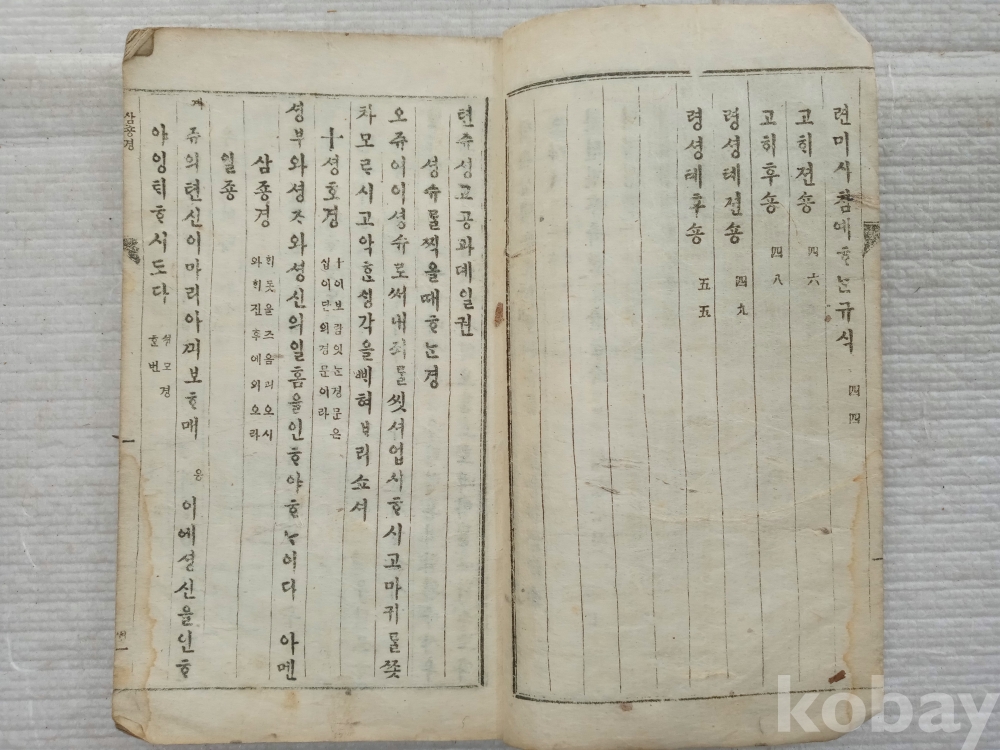 련미사참예ᄒᆞᄂᆞᆫ규식 四四
고ᄒᆡ젼송 四六
고ᄒᆡ후송 四八
령셩톄젼송 四九
령셩톄후송 五五
텬쥬셩교공과뎨일권
셩슈ᄅᆞᆯ찍을때ᄒᆞᄂᆞᆫ경
오쥬여이셩슈로써내죄ᄅᆞᆯ씻셔업시ᄒᆞ시고마귀ᄅᆞᆯ쫏
차모르시고악ᄒᆞᆫᄉᆡᆼ각을ᄲᅢ혀ᄇᆞ리쇼셔
十셩호경
十이보람잇ᄂᆞᆫ경문은
십이단외경문이라
셩부와셩ᄌᆞ와셩신의일홈을인ᄒᆞ야ᄒᆞᄂᆞ이다 아멘
삼죵경
ᄒᆡ돗을즈음과오시
와ᄒᆡ진후에외오라
일죵
계
쥬의텬신이마리아ᄭᅴ보ᄒᆞ매 응 이에셩신을인ᄒᆞ
야잉ᄐᆡᄒᆞ시도다
셩모경
ᄒᆞᆫ번
삼죵경
一
kobay